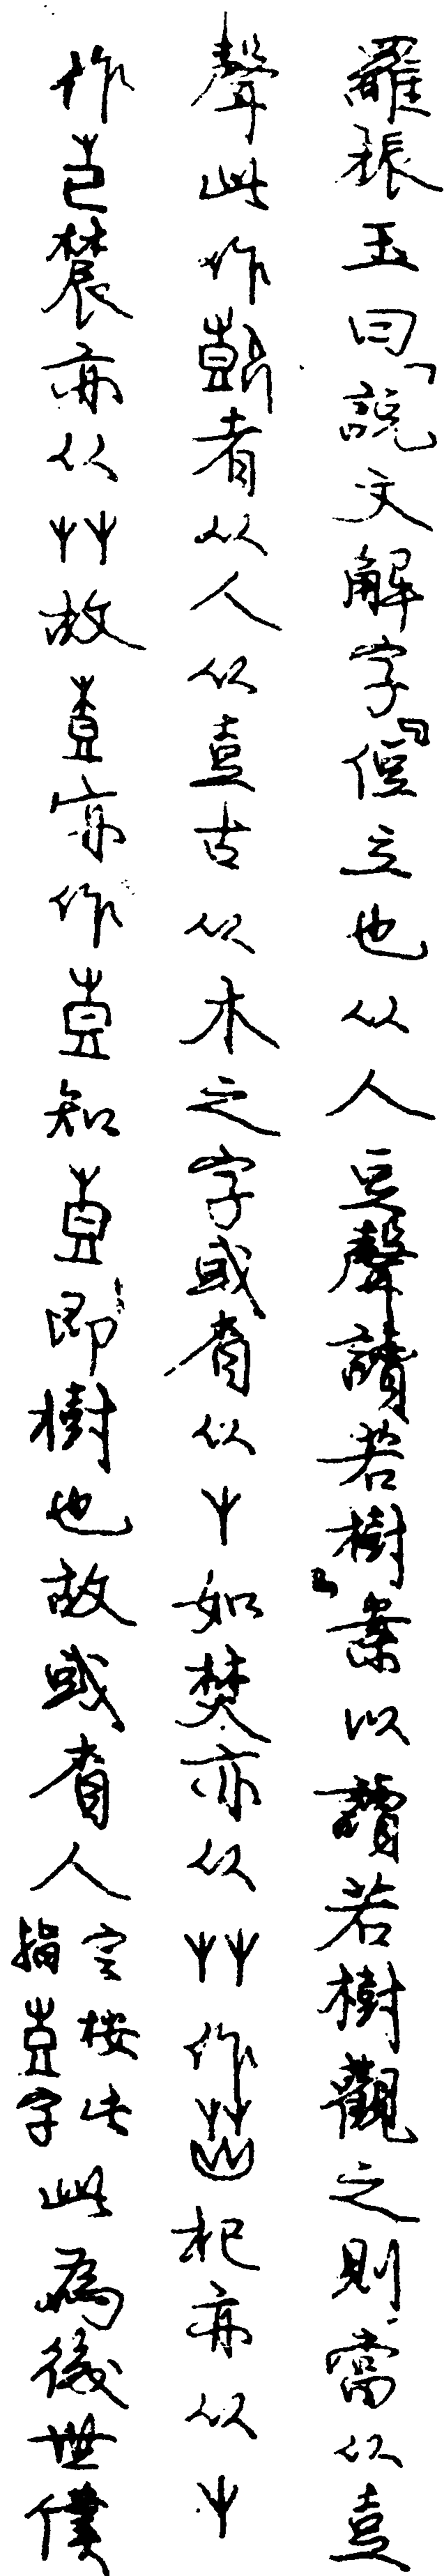 羅振玉曰「說文解字『侸立也从人豆聲讀若樹』案以讀若樹觀之則當从壴
聲此作者从人从壴古从木之字或省从屮如焚亦从艸作杞亦从屮
作芑䢅亦从艸故壴亦作壴知壴即樹也故或省人定按此指壴字此為後世僕